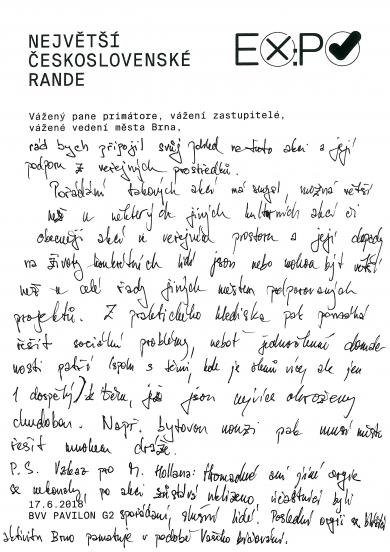 NEJVĚTŠÍ
ČESKOSLOVENSKÉ
RANDE
EX:PO
Vážený pane primátore, vážení zastupitelé,
vážené vedení města Brna,
rád bych připojil svůj pohled na tuto akci a její
podporu z veřejných prostředků.
Pořádání takových akcí má smysl, možná větší
než u některých jiných kulturních akcí či
obecněji akcí u veřejných prostoru a její dopady
na životy konkrétních lidí jsou nebo mohou být větší
než u celé řady jiných městem podporovaných
projektů. Z praktického hlediska pak pomáhá
řešit sociální problémy, neboť jednočlenné domác-
nosti patří (spolu s těmi, kde je členů více, ale jen
1 dospělý) k těm, jež jsou nejvíce ohroženy
chudobou. Např. bytovou nouzi pak musí město
řešit mnohem dráže.
P.S. Vzkaz pro M. Hollana: Hromadné ani jiné orgie
se nekonaly, po akci zůstává uklizeno, účastníci byli
17.6.2018
BVV PAVILON G2
spořádaní, slušní lidé. Poslední orgií se
aktivitu Brno pamatuje v podobě Vašeho